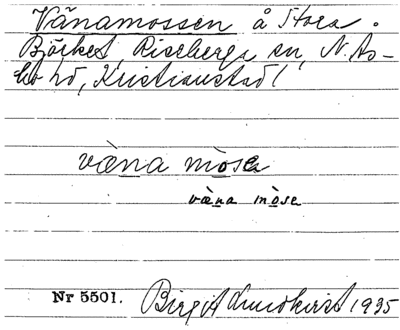 Vånamossen å Stora
Björket, Riseberga sn, N. Ås-
bo hd, Kristianstad l
væna mòsa
væna mòsa
Nr 5501. Birgit Lundkvist 1935